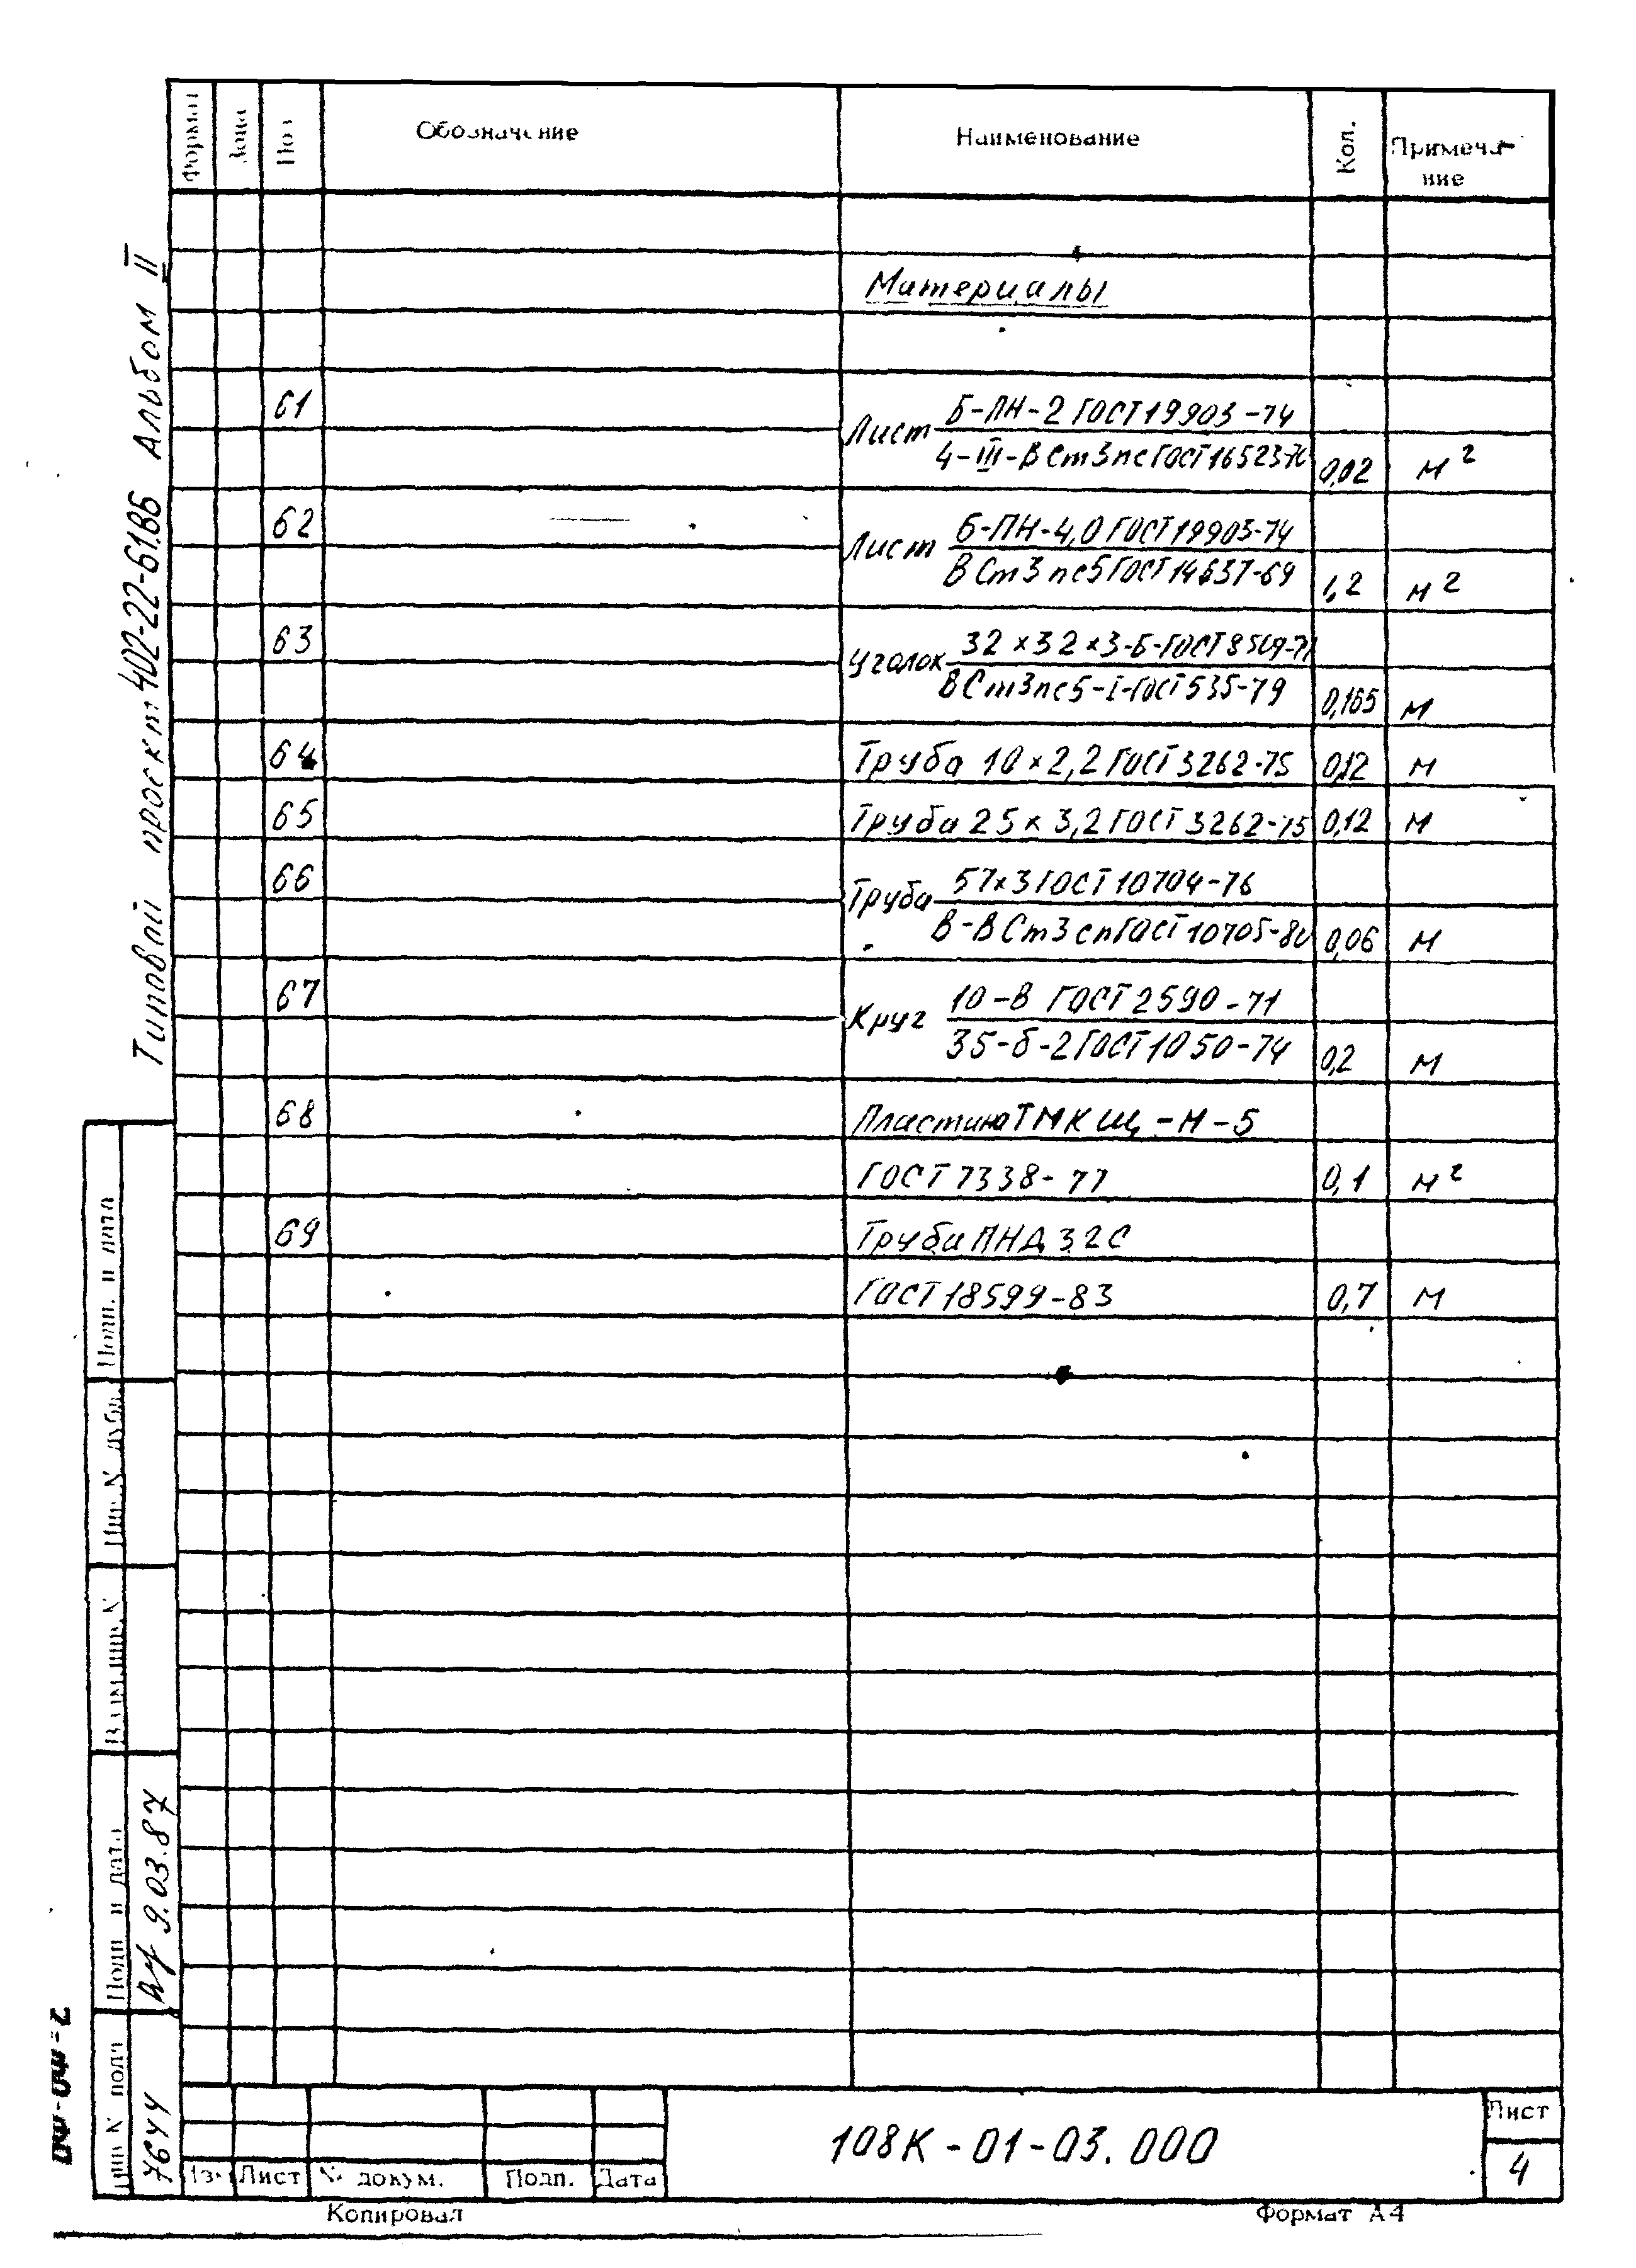 Формат Зона Поз Обозначение Наименование Кол. Примеча-
ние
Материалы
61 Лист Б-ПН-2 ГОСТ 19903-74
4-III-ВСт3пс ГОСТ 16523-70 0,02 м²
62 Лист Б-ПН-4,0 ГОСТ 19903-74
ВСт3пс5 ГОСТ 14637-69 1,2 м²
63 Уголок 32×32×3-Б-ГОСТ 8509-71
ВСт3пс5-I-ГОСТ 535-79 0,165 м
64 Труба 10×2,2 ГОСТ 3262-75 0,12 м
65 Труба 25×3,2 ГОСТ 3262-75 0,12 м
66 Труба 57×3 ГОСТ 10704-76
В-ВСт3сп ГОСТ 10705-80 0,06 м
67 Круг 10-В ГОСТ 2590-71
35-б-2 ГОСТ 1050-74 0,2 м
68 Пластина ТМКЩ-М-5
ГОСТ 7338-77 0,1 м²
69 Труба ПНД 32С
ГОСТ 18599-83 0,7 м
Типовой проект 402-22-61.86 Альбом II
Подп. и дата
Инв.N дубл.
Взам.инв.N
Подп и дата
9.03.87
Инв N подл
7644
ОФ-04-2
108К-01-03.000
Лист
4
Изм Лист № докум. Подп. Дата
Копировал Формат А4